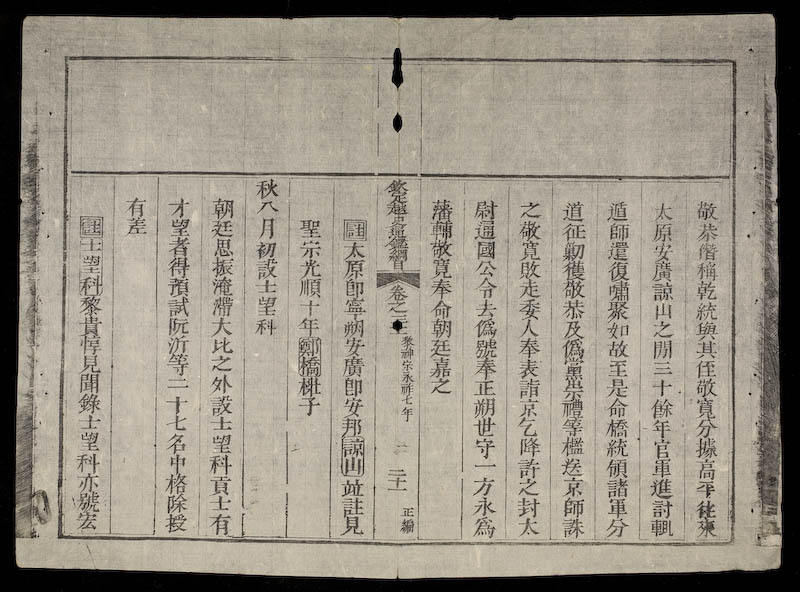 敬恭僭稱乾統與其侄敬寬分據高平往來
太原安廣諒山之閒三十餘年官軍進討輒
遁師還復嘯聚如故至是命橋統領諸軍分
道征勦獲敬恭及僞黨崇禮等檻送京師誅
之敬寬敗走委人奉表詣京乞降許之封太
尉通國公令去僞號奉正朔世守一方永爲
藩輔敬寬奉命朝廷嘉之
欽定越史通鑑綱目 卷之三十 黎神宗永祚七年 二十 正編
註太原卽寧朔安廣卽安邦諒山並註見
聖宗光順十年鄭橋梉子
秋八月初設士望科
朝廷思振淹滯大比之外設士望科貢士有
才望者得預試阮沂等二十七名中格除授
有差
註士望科黎貴惇見聞錄士望科亦號宏